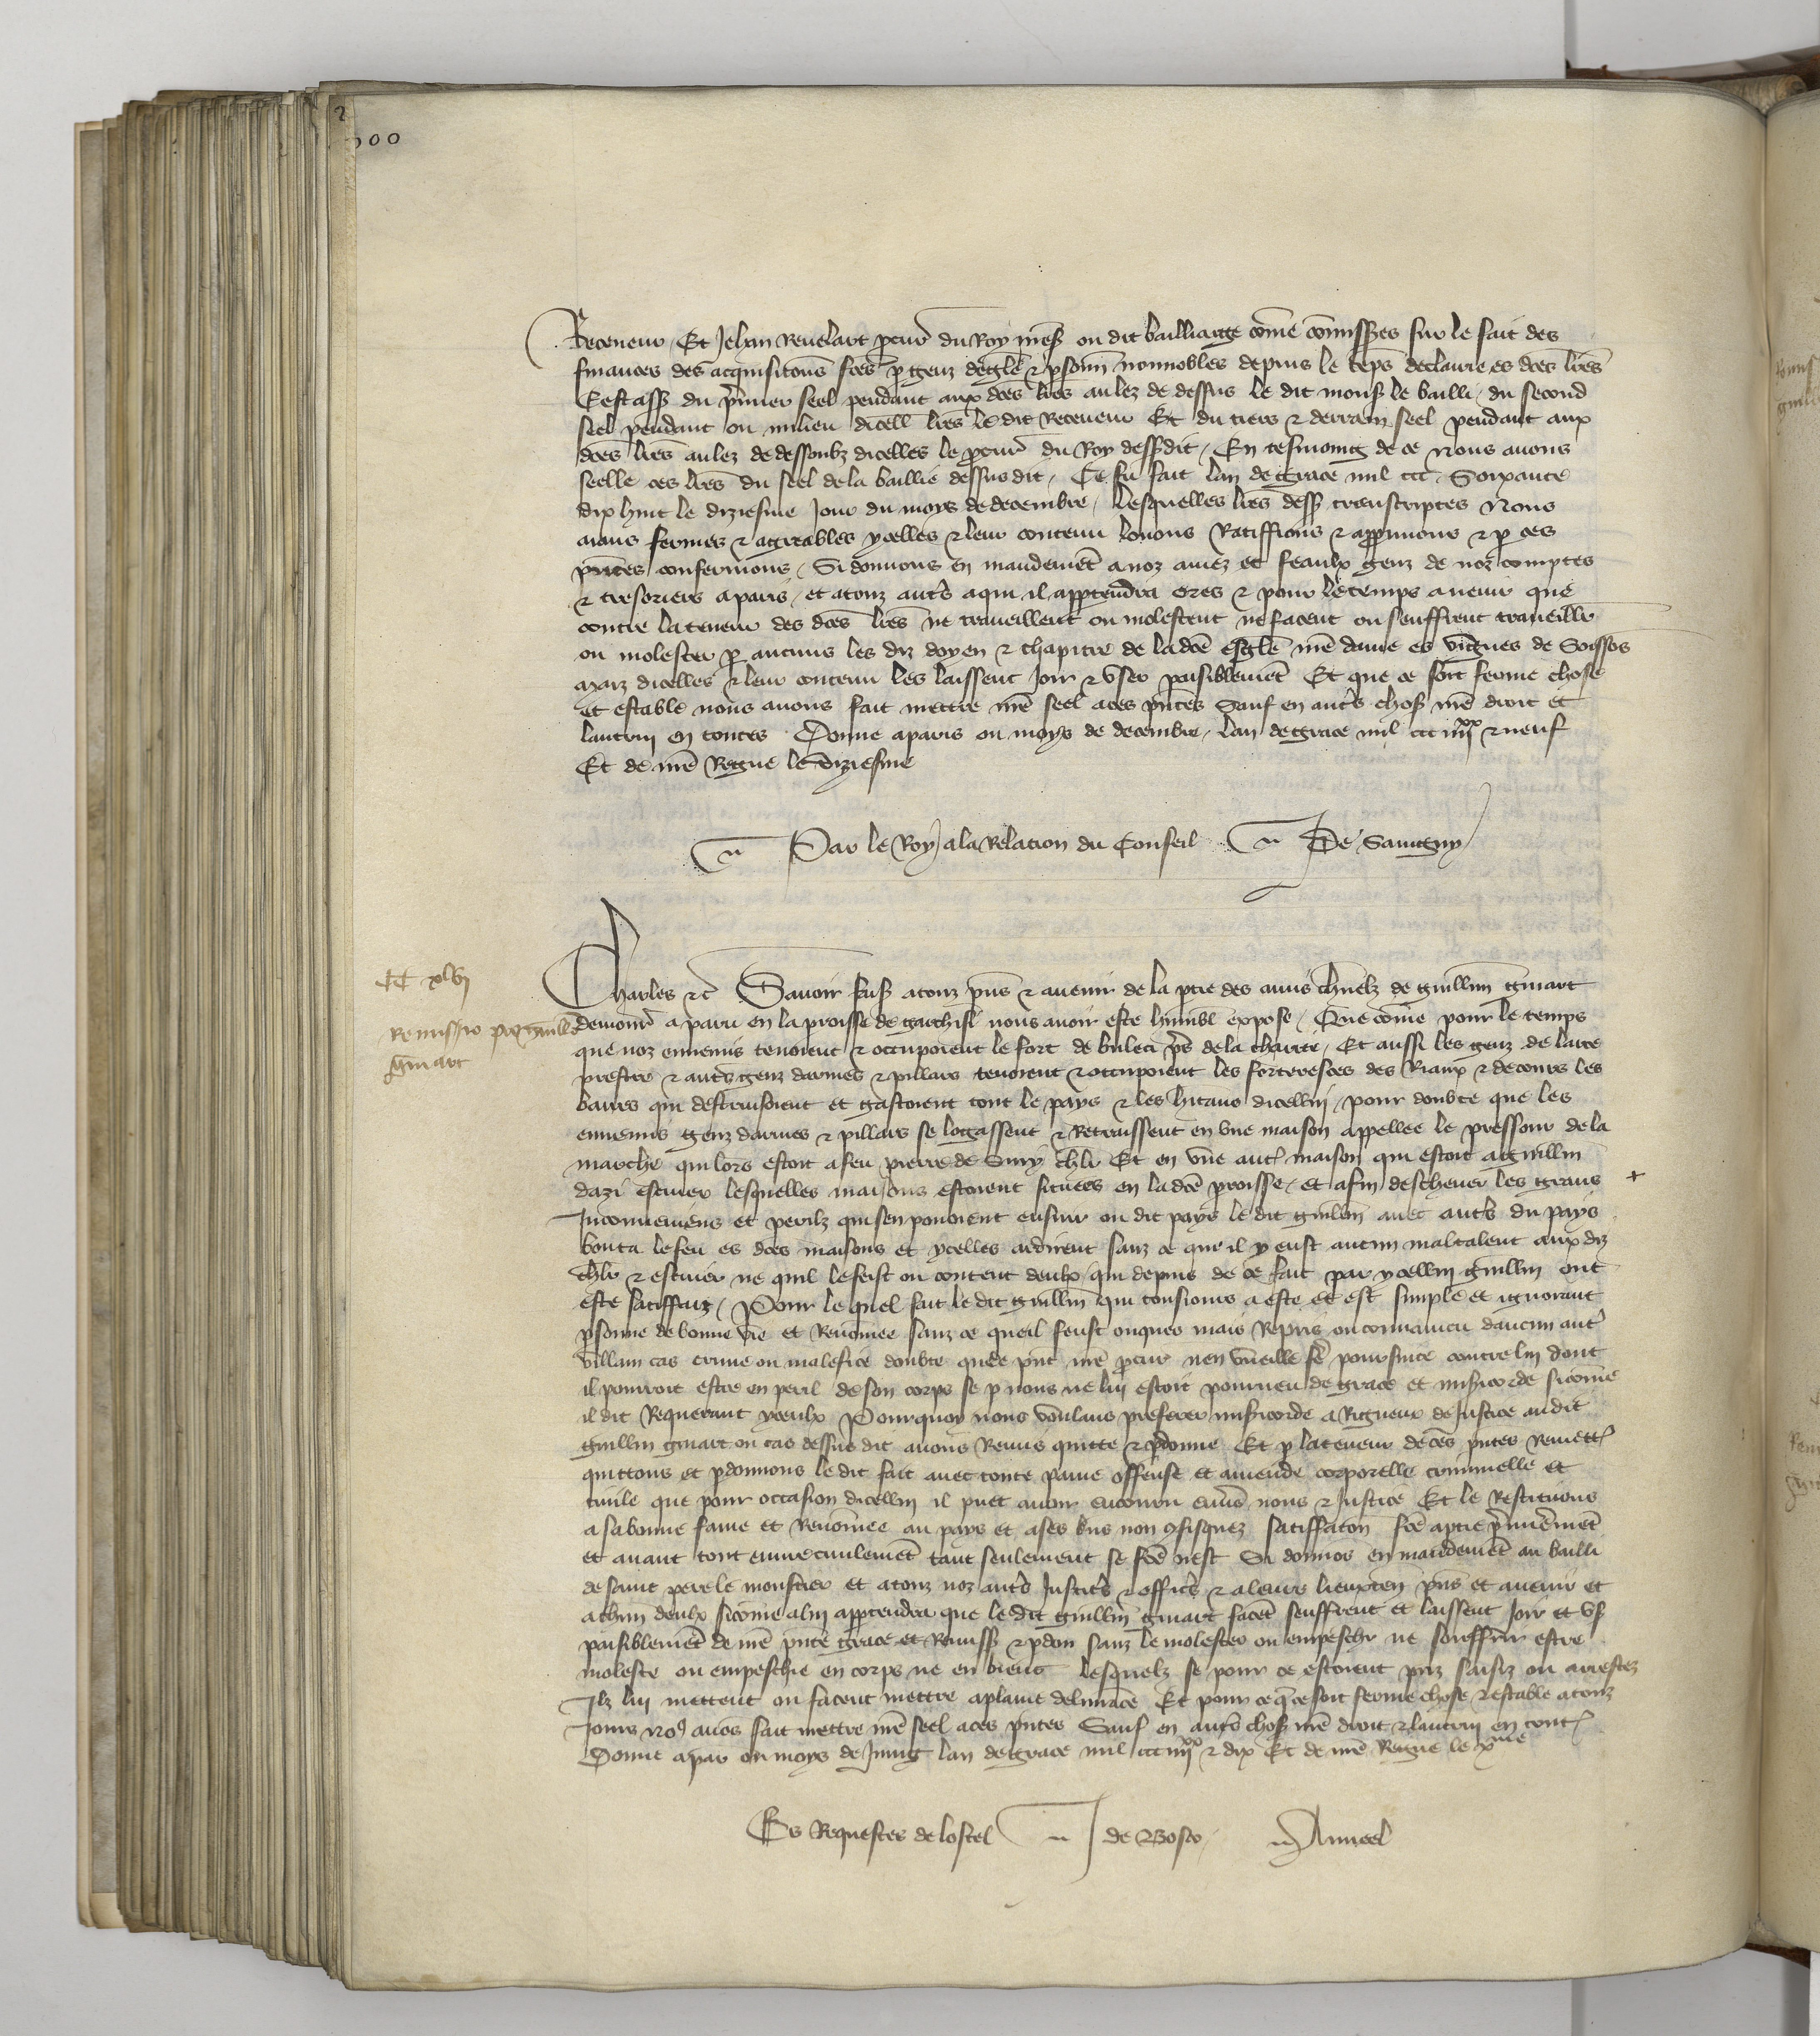 Receveur, Et Jehan Revelart p̄cur̄ du Roy n̄re ss ou dit bailliage cōme cōmissres sur le fait des
finances des acquisitōns fc̄es p̄ genz deglē ⁊ p̄sonn̄ nonnobles depuis le tēps declaire es dc̄es lr̄es
Cest ass du p̄mier seel pendant aux dc̄es lr̄es au lez de dessus le dit monss le bailli, du second
seel pendant ou milieu dicell̄ lr̄es le dit Receveur Et du tiers ⁊ derrain seel pendant aux
dc̄es lr̄es au lez de dessoubz dicelles le p̄cur̄ du Roy dessdit, En tesmoing de ce Nous avons
seelle ces lr̄es du seel de la baillie dessus dit, Ce fu fait lan de grace mil ccc Soixante
dix huit le diziesme Jour du moys de decembre, Lesquelles lr̄es dess transcriptes Nous
aians fermes ⁊ agreables ycelles ⁊ leur contenu louons Ratiffions ⁊ app̄uvons ⁊ p̄ ces
p̄ntes confermons, Si donnons en mandemēt a noz amez et feaulx genz de noz comptes
⁊ tresoriers a paris, et a touz aut̄s a qui il app̄tendra ores ⁊ pour le temps avenir que
contre la teneur des dc̄es lr̄es ne traveillent ou molestent ne facent ou seuffrent traveillr̄
ou molester p̄ aucuns les diz doyen ⁊ chapitre de la dc̄e esglē n̄re dame es vignes de Soissos
maiz dicelles ⁊ leur contenu les laissent Joir ⁊ user paisiblemēt Et que ce soit ferme chose
et estable nous avons fait mettre n̄re seel a ces p̄ntes Sauf en aut̄s choss n̄re droit et
lautruy en toutes Donne a paris ou moys de decembre, Lan de grace mil ccc iiii xx ⁊ neuf
Et de n̄re Regne le diziesme
Par le Roy a la Relation du Conseil De Savigny
CC xlvj
Remissio pro Guillo
Guiart
Charles ⁊c̄ Savoir faiss a touz p̄ns ⁊ avenir de la p̄tie des amis charnelz de guillm̄ guiart
demour̄ a paru en la p̄roisse de garchisi nous avoir este humbl̄ expose, Que cōme pour le temps
que noz ennemis tenoient ⁊ occupoient le fort de buleci p̄s de la charite, Et aussi les genz de larce
prestre ⁊ aut̄s genz darmes ⁊ pillars tenoient ⁊ occupoient les forteresces des Riaux ⁊ de cours les
barres qui destruisoient et gastoient tout le pays ⁊ les hitans dicellui, pour doubte que les
ennemis genz darmes ⁊ pillars se logassent ⁊ Retraissent en une maison appellee le pressour de la
marche qui lors estoit a feu pierre de Sury chlr̄ Et en une aut̄ maison qui estoit a guillm̄
dazi escuier lesquelles maisons estoient situees en la dc̄e p̄roisse, et afin descheuer les grans
Inconveniens et perilz qui sen povoient ensuir ou dit pays le dit guillm̄ avec aut̄s du pays
bouta le feu es dc̄es maisons et ycelles ardirent sanz ce que il y eust aucun maltalent aux diz
chlr̄ ⁊ escuier ne quil le feist ou content deulx, qui depuis de ce fait par ycellui guillm̄ ont
este satiffaiz, Pour le quel fait le dit guillm̄ qui tousiours a este et est simple et ignorant
p̄sonne de bonne vie et Renōmee sanz ce que il feust onques mais Repris ou convaincu daucun aut̄
villain cas crime ou malefice doubte que le p̄nt n̄re p̄cur̄ nen vueille fe᷑ poursuite contre lui dont
il pourroit estre en peril de son corps se p̄ nous ne lui estoit pourveu de grace et misicorde sicōme
il dit Requerant yceulx Pourquoy nous voulans preferer misicorde a Rigueur de Justice au dit
guillm̄ guiart ou cas dessus dit avons Remis quitte ⁊ p̄donne Et p̄ la teneur de ces p̄ntes Remett̄
quittons et p̄donnons le dit fait avec toute paine offense et amende corporelle criminelle et
civile que pour occasion dicellui il puet avoir encouru env̄s nous ⁊ Justice Et le Restituons
a sa bonne fame et Renōmee au pays et a ses biens non 9fisquez satiffacōn fc̄e a p̄tie p̄mieremēt
et avant tout euvre civilemēt tant seulement se fc̄e nest Si donnos en mandemēt au bailli
de saint pere le moustier et a touz noz aut̄s Justic̄s ⁊ offic̄s ⁊ a leurs lieuxten̄ p̄ns et avenir et
a chun deulx sicōme a lui app̄tendra que le dit guillm̄ guiart facēt seuffrent et laissent Joir et us̄
paisiblemēt de n̄re p̄nte grace et Remiss ⁊ p̄don sanz le molester ou empeschr̄ ne souffrir estre
moleste ou empeschie en corps ne en biens lesquelz se pour ce estoient p̄nz saisiz ou arrestez
Ilz lui mettent ou facent mettre a plaine delivrāce Et pour ce q̄ ce soit ferme chose ⁊ estable a touz
Jours no9 avōs fait mettre n̄re seel a ces p̄ntes Sauf en aut̄s choss n̄re droit ⁊ lautruy en tout̄
Donne a par̄ ou moys de Juing lan de grace mil ccc iiii xx ⁊ dix Et de n̄re Regne le x me
Es Requestes de lostel J de Bosco Anncel